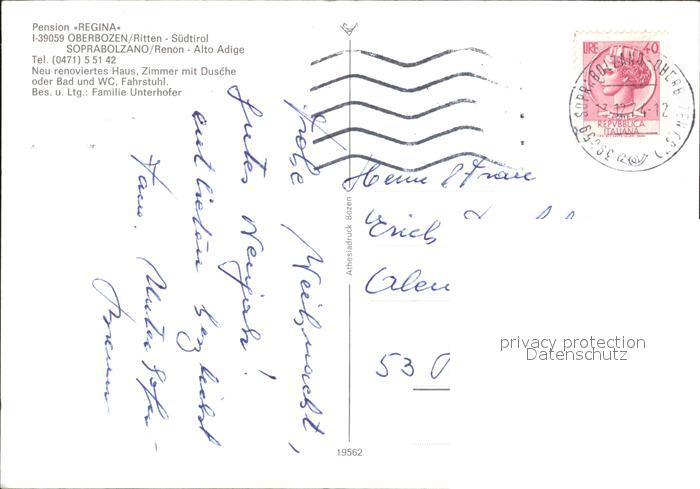 Pension «REGINA»
I-39059 OBERBOZEN/Ritten - Südtirol
SOPRABOLZANO/Renon - Alto Adige
Tel. (0471) 5 51 42
Neu renoviertes Haus, Zimmer mit Dusche
oder Bad und WC, Fahrstuhl.
Bes. u. Ltg.: Familie Unterhofer
Frohe Weihnacht,
Gutes Neujahr!
entbieten herzlichst
Fam. Unterhofer -
LIRE 40
REPVBBLICA
ITALIANA
39059 SOPRABOLZANO-OBERBOZEN (BZ)
Herrn & Frau
Erich
53
Athesiadruck Bozen
19562
privacy protection
Datenschutz